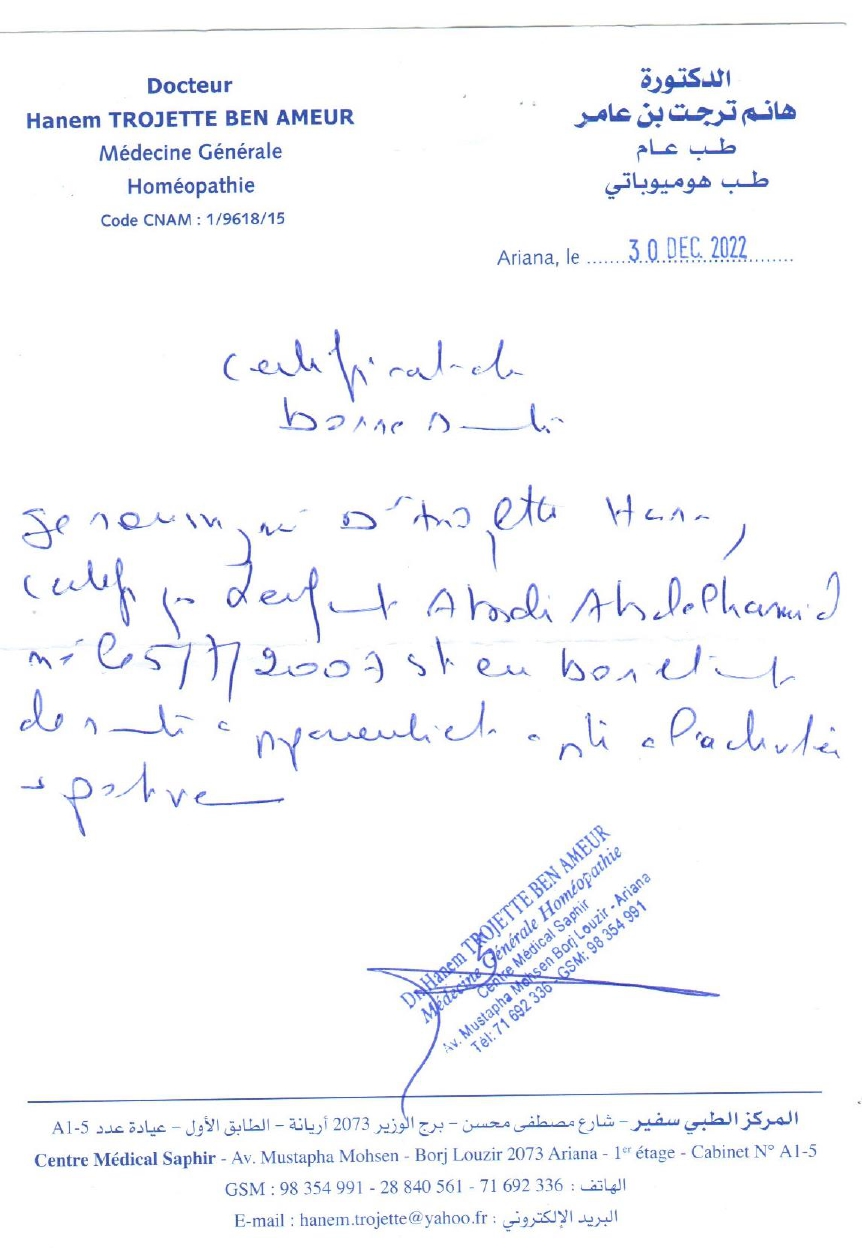 Docteur
Hanem TROJETTE BEN AMEUR
Médecine Générale
Homéopathie
Code CNAM : 1/9618/15
الدكتورة
هانم ترجت بن عامر
طب عام
طب هوميوباتي
Ariana, le ...... 30 DEC. 2022 ......
Certificat de
bonne santé
Je soussigné Dr Trojette Hanem,
certifie que l'enfant Abdelhamid
né le 5/7/2007 est en bon état
de santé apparent et apte à l'activité
sportive
Dr. Hanem TROJETTE BEN AMEUR
Médecine Générale Homéopathie
Centre Médical Saphir
Av. Mustapha Mohsen Borj Louzir - Ariana
Tél: 71 692 336 - GSM: 98 354 991
المركز الطبي سفير – شارع مصطفى محسن – برج الوزير 2073 أريانة – الطابق الأول – عيادة عدد A1-5
Centre Médical Saphir - Av. Mustapha Mohsen - Borj Louzir 2073 Ariana - 1er étage - Cabinet N° A1-5
GSM : 98 354 991 - 28 840 561 - 71 692 336 : الهاتف
E-mail : hanem.trojette@yahoo.fr : البريد الإلكتروني